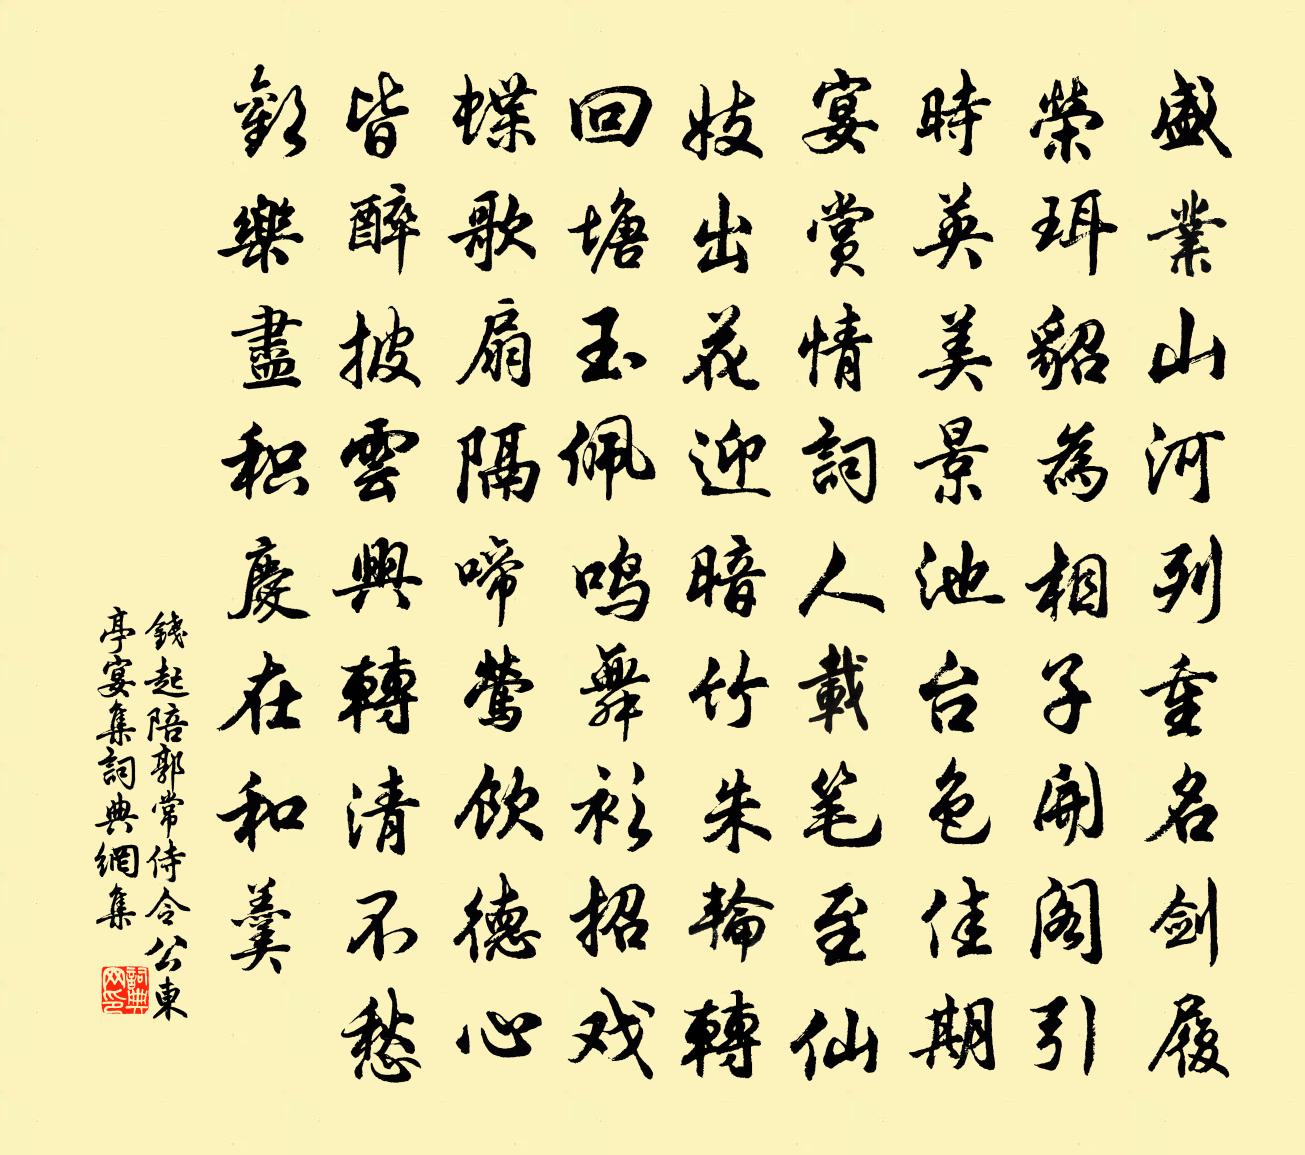 盛業山河列重名剑履
榮珥貂為相子開阁引
時英美景池台色佳期
宴賞情詞人載笔至仙
妓出花迎暗竹朱輪轉
回塘玉佩鸣舞衫招戏
蝶歌扇隔啼鶯飲德心
皆醉披雲興轉清不愁
歡樂盡积慶在和羹
錢起陪郭常侍令公東
亭宴集詞典網集
詞典网印